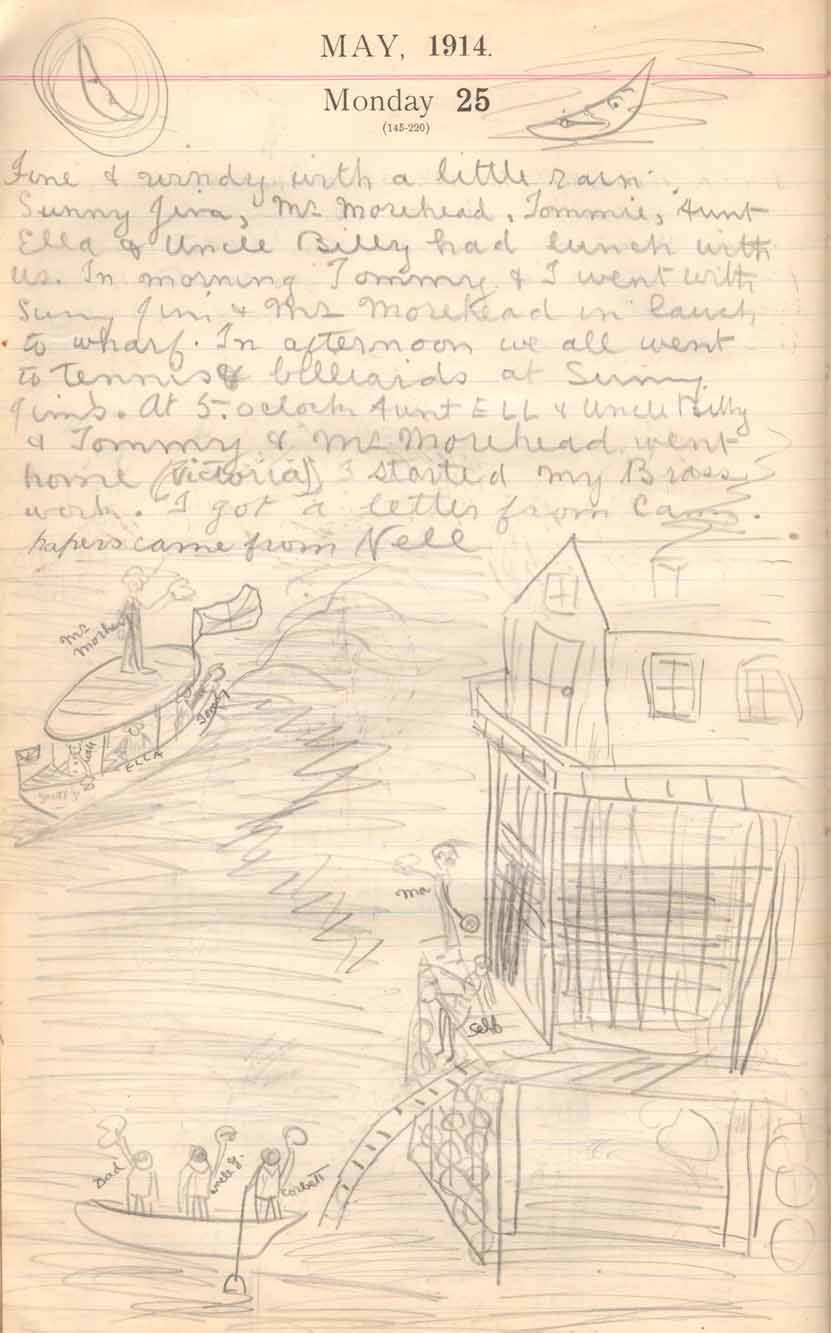 MAY, 1914.
Monday 25
(145-220)
Fine & windy with a little rain.
Sunny Jim, Mr Morehead, Tommie, Aunt
Ella & Uncle Billy had lunch with
us. In morning Tommy & I went with
Sunny Jim & Mr Morehead in lauch
to wharf. In afternoon we all went
to Tennis & billiards at Sunny
Jim's. At 5. oclock Aunt ELL & Uncle Billy
& Tommy & Mr Morehead went
home (Victoria) I started my Brass
work. I got a letter from Cam.
papers came from Nell
Mr
Tommy
ELLA
Ma
Self
Dad
Uncle J.
Corbett